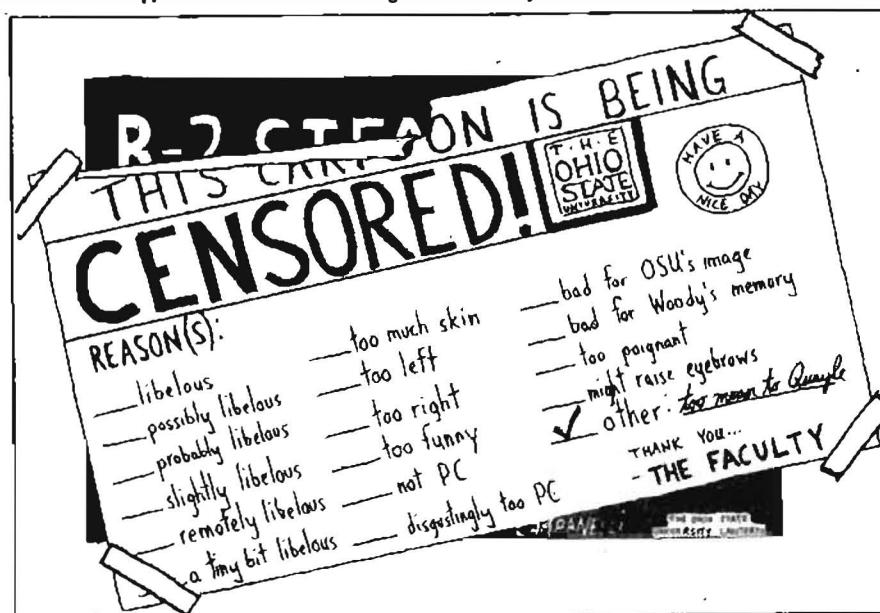 B-2 STEA
THIS CARTOON IS BEING
CENSORED!
T·H·E
OHIO
STATE
UNIVERSITY
HAVE A
NICE DAY
REASON(S):
__libelous
__possibly libelous
__probably libelous
__slightly libelous
__remotely libelous
__a tiny bit libelous
__too much skin
__too left
__too right
__too funny
__not PC
__disgustingly too PC
__bad for OSU's image
__bad for Woody's memory
__too poignant
__might raise eyebrows
✓__other: too mean to Quayle
THANK YOU...
- THE FACULTY
THE OHIO STATE
UNIVERSITY LANTERN